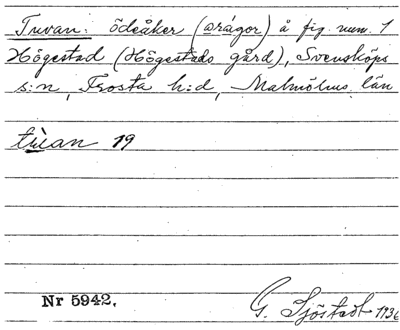 Tuvan: ödeåker (drågor) å fig. num. 1
Högestad (Högestads gård), Svensköps
s:n, Frosta h:d, Malmöhus län
tùan 19
Nr 5942.
G. Sjöstedt 1936